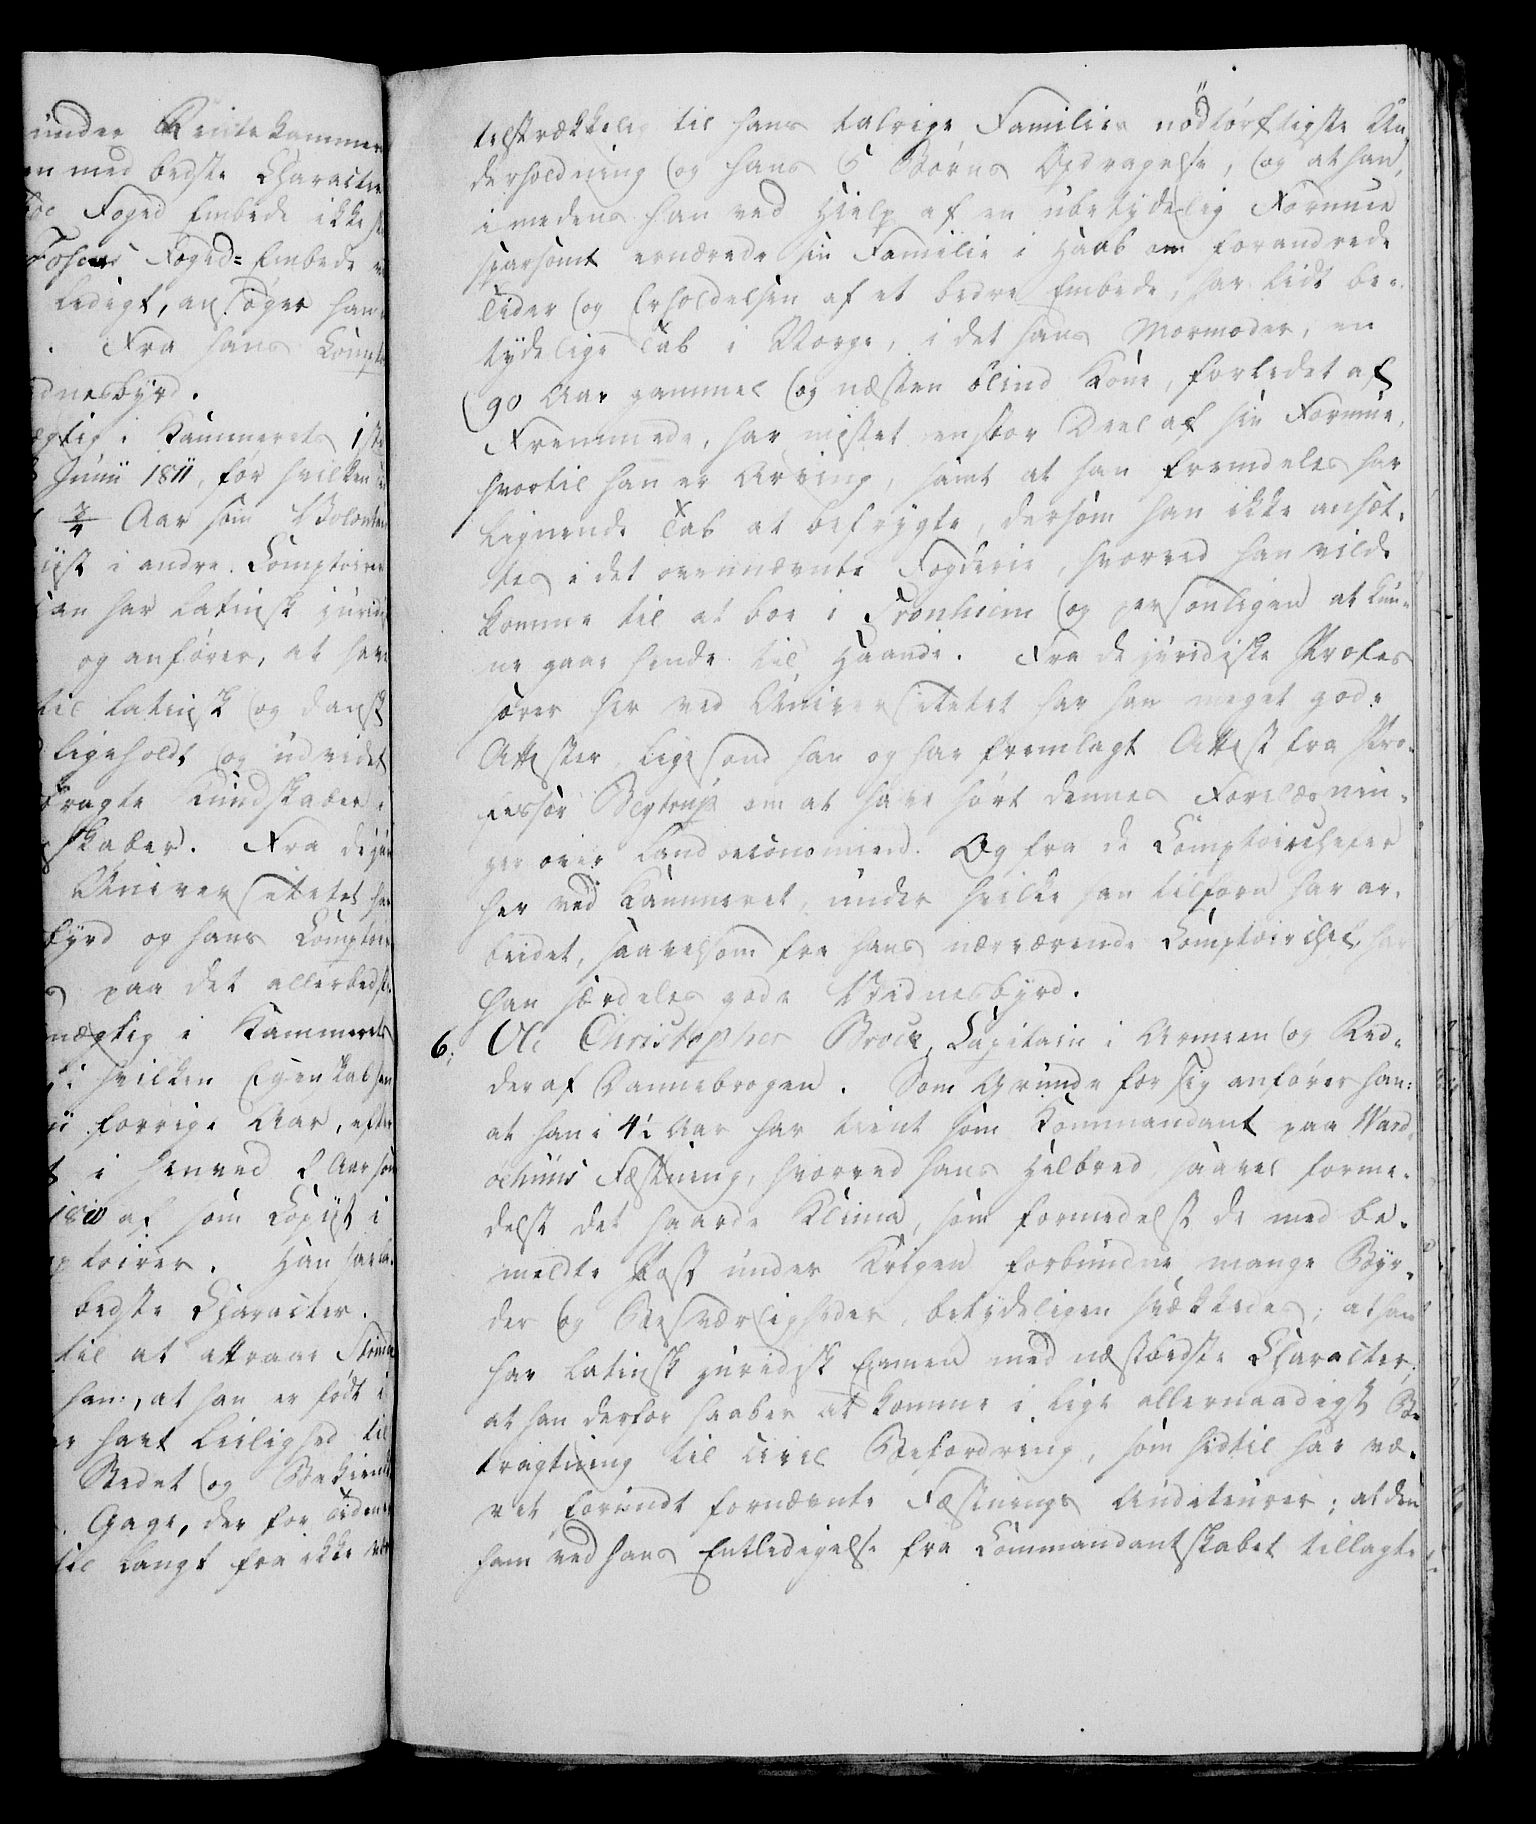 under Rentekammer
en med bedste Character
Foged Embede ikke
Fosens Foged-Embede
ledigt, ansøger han
Fra hans Compt
dnesbyrd.
ægtig i Kammerets 1ste
Junii 1811, for hvilken
3/4 Aar som Volontair
iist i andre Comptoirer
an har latinsk juridi
og anfører, at have
til latinsk og dansk
ligeholdt og udvidet
bragte Kundskaber
skaber. Fra de jur
Universitetet har
byrd og hans Comptoir
s paa det allerbedste
mægtig i Kammerets
i hvilken Egenskab han
forrige Aar, efter
t i henved 2 Aar som
1810 af som Copiist i
ptoirer. Han har la
bedste Character.
til at attraae Strinda
han, at han er født i
r havt Leilighed til
Stedet og Bekiendt
Gage, der for Tiden
til langt fra ikke er
telstrækkelig til hans talrige Families nødtørftigste Un-
derholdning og hans 6 Børns Opdragelse, og at han,
imedens han ved Hielp af en ubetydelig Formue
sparsomt ernærede sin Familie i Haab om forandrede
Tider og Erholdelsen af et bedre Embede, har lidt be-
tydelige Tab i Norge, i det hans Mormoder, en
90 Aar gammel og næsten blind Kone, forledet af
Fremmede, har mistet en stor Deel af sin Formue,
hvortil han er Arving, samt at han fremdeles har
lignende Tab at befrygte, dersom han ikke ansæt-
tes i det ovennævnte Fogderie, hvorved han vilde
komme til at boe i Tronhiem og personligen at kun-
ne gaae hende til Haande. Fra de juridiske Profes
sorer her ved Universitetet har han meget gode
Attester, ligesom han og har fremlagt Attest fra Pro-
fessor Begtrup om at have hørt dennes Forelæsnin-
ger over Landoeconomien. Og fra de Comptoirchefer
her ved Kammeret, under hvilke han tilforn har ar-
beidet, saavelsom fra hans nærværende Comptoirchef, har
han særdeles gode Vidnesbyrd.
6, Ole Christopher Brock, Capitain i Armeen og Rid-
der af Dannebrogen. Som Grunde for sig anfører han:
at han i 4½ Aar har tient som Kommandant paa Ward-
øehuus Fæstning, hvorved hans Helbred, saavel forme-
delst det haarde Klima, som formedelst de med be-
meldte Post under Krigen forbundne mange Byr-
der og Besværligheder, betydeligen svækkedes; at han
har latinsk juridisk Examen med næstbedste Character;
at han derfor haaber at komme i lige allernaadigst Be
tragtning til civil Befordring, som hidtil har væ-
ret forundt fornævnte Fæstnings Auditeurer; at den
ham ved hans Entledigelse fra Commandantskabet tillagte